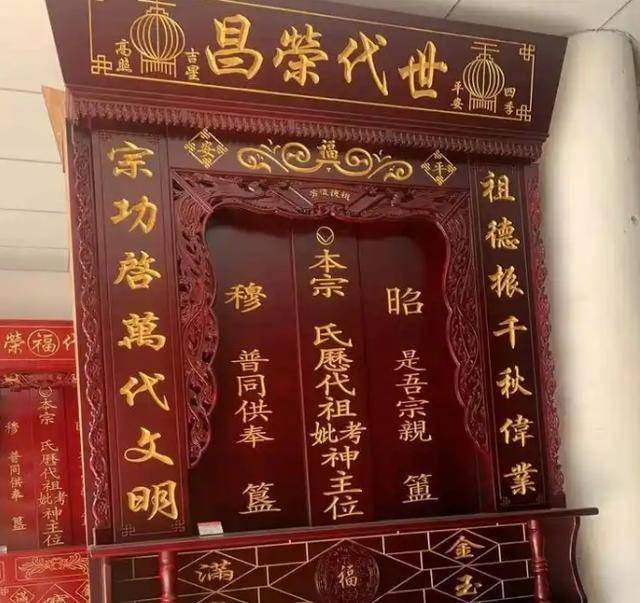 世代榮昌
四季
平安
吉星
高照
平
福
安
祖德振千秋偉業
宗功啓萬代文明
昭 是吾宗親 簠
本宗 氏歷代祖考妣神主位
穆 普同供奉 簋
金玉
福
滿
代福榮
本宗 氏歷代祖考妣神主位
穆 普同供奉 簋